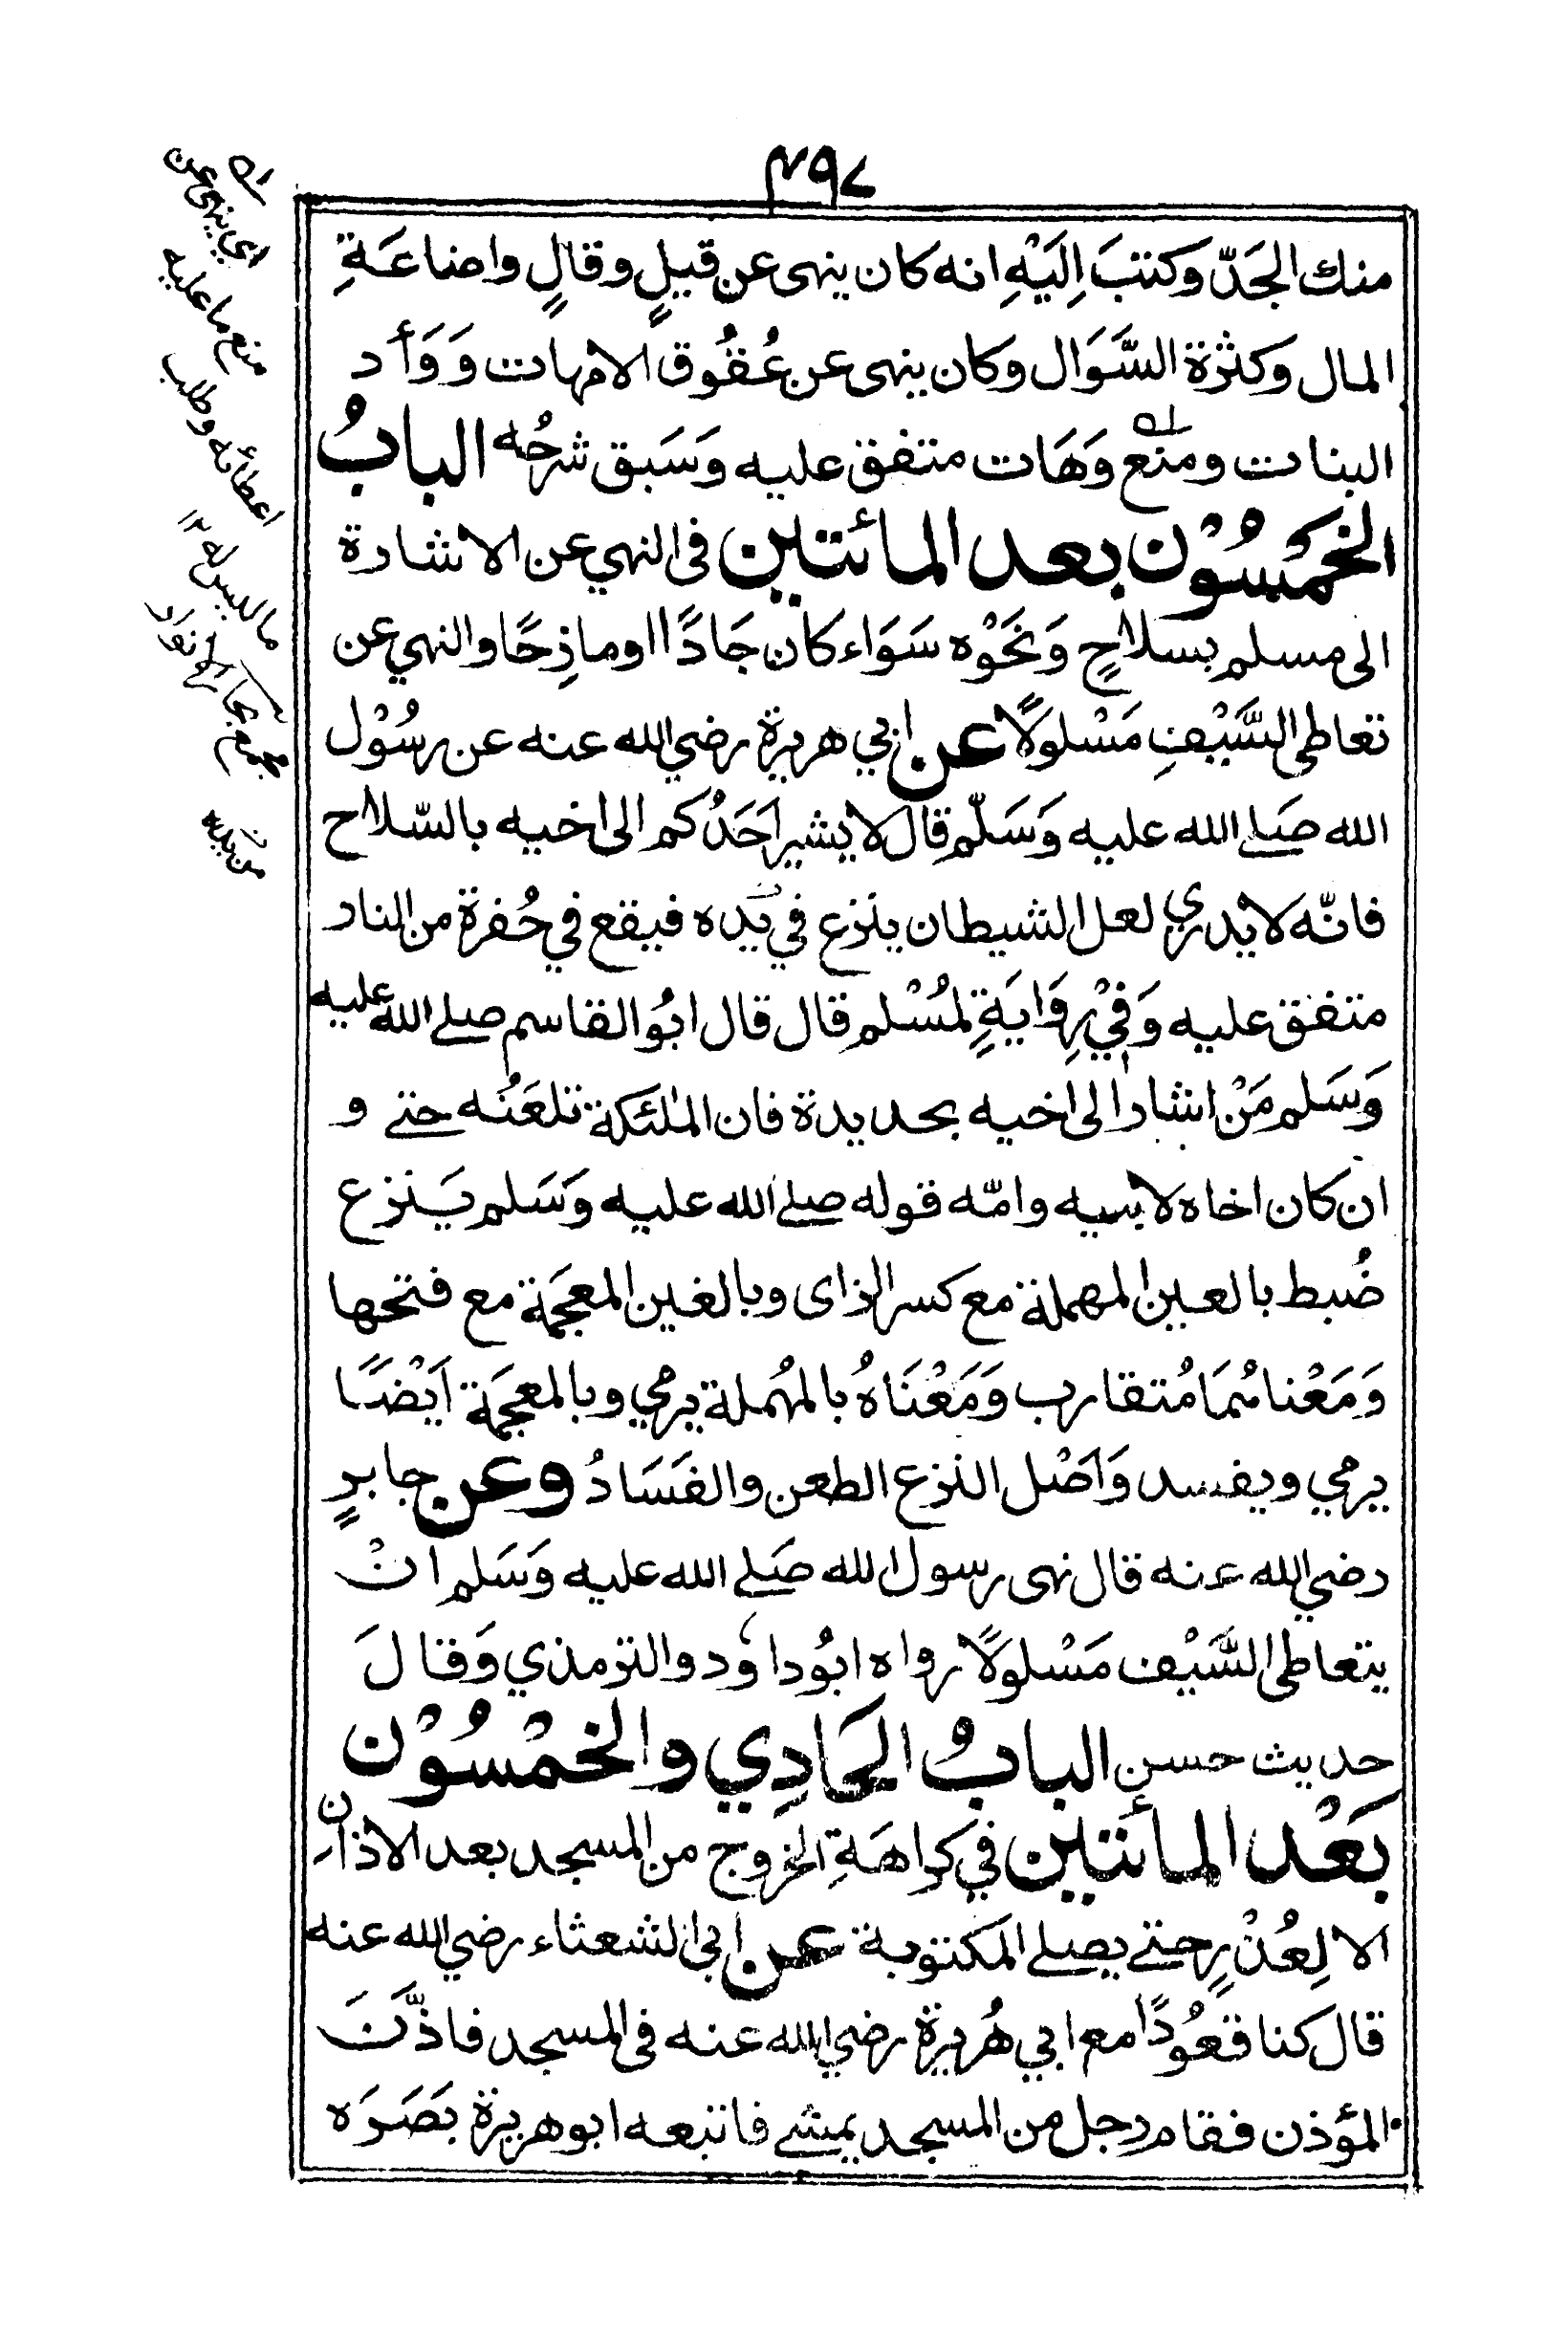 ٤٩٧
منك الجَدّ وكتبَ اِلَيْهِ انه كان ينهى عن قيلٍ وقالٍ واضاعَةِ
المال وكثرة السَّوَال وكان ينهى عن عُقُوق الامهات وَوَأد
البنات ومنع وَهَات متفق عليه وَسَبق شرحُه البابُ
الخَمْسُوْن بعد المائتين فى النهي عن الاشارة
الى مسلم بسلاحٍ وَنَحْوِه سَوَاء كان جَادًّا او ماذِحًا والنهي عن
تعاطى السَّيْفِ مَسْلولًا عن ابي هريرة رضي الله عنه عن رسُوْل
الله صَلے الله عليه وَسَلّم قال لا يشير اَحَدُكم الى اخيه بالسّلاح
فانّه لا يَدري لعل الشيطان ينزع في يَده فيقع في حُفرة من النار
متفق عليه وَفِيْ رِوَايَةٍ لمُسْلم قال قال ابُو القاسم صلے الله عليه
وَسَلم مَنْ اشار الى اخيه بحديدة فان الملئكة تلعَنُه حتے و
ان كان اخاه لابيه وامّه قوله صلے الله عليه وَسَلم يَنزع
ضُبط بالعين المهملة مع كسر الزاى وبالغين المعجَمة مع فتحها
وَمَعْناهُمَا مُتقارب وَمَعْنَاهُ بالمهُملة يرمي وبالمعجَمَة اَيْضًا
يرمي ويفسد وَاَصْل النزع الطعن والفَسَادُ وعن جابرٍ
رضي الله عنه قال نهى رسول الله صَلے الله عليه وَسَلم انْ
يتعاطى السَّيْف مَسْلولًا رواه ابُوداوٗد والترمذي وَقالَ
حديث حسن البابُ الحَادِي والخَمْسُوْن
بَعْد المأئتين في كراهَةِ الخروج من المسجد بعد الاذانِ
الا لِعُذْرٍ حتے يصلے المكتوبة عن ابي الشعثاء رضي الله عنه
قال كنا قعُودًا مع ابي هُريرة رضي الله عنه فى المسجد فاذَّنَ
المؤذن فقام رجل من المسجد يمشے فاتبعه ابو هريرة بَصَرَه
اي ينهى عن
منع ما عليه
اعطائه وطلب
ما ليس له ١٢
مجمع بحار الانوار